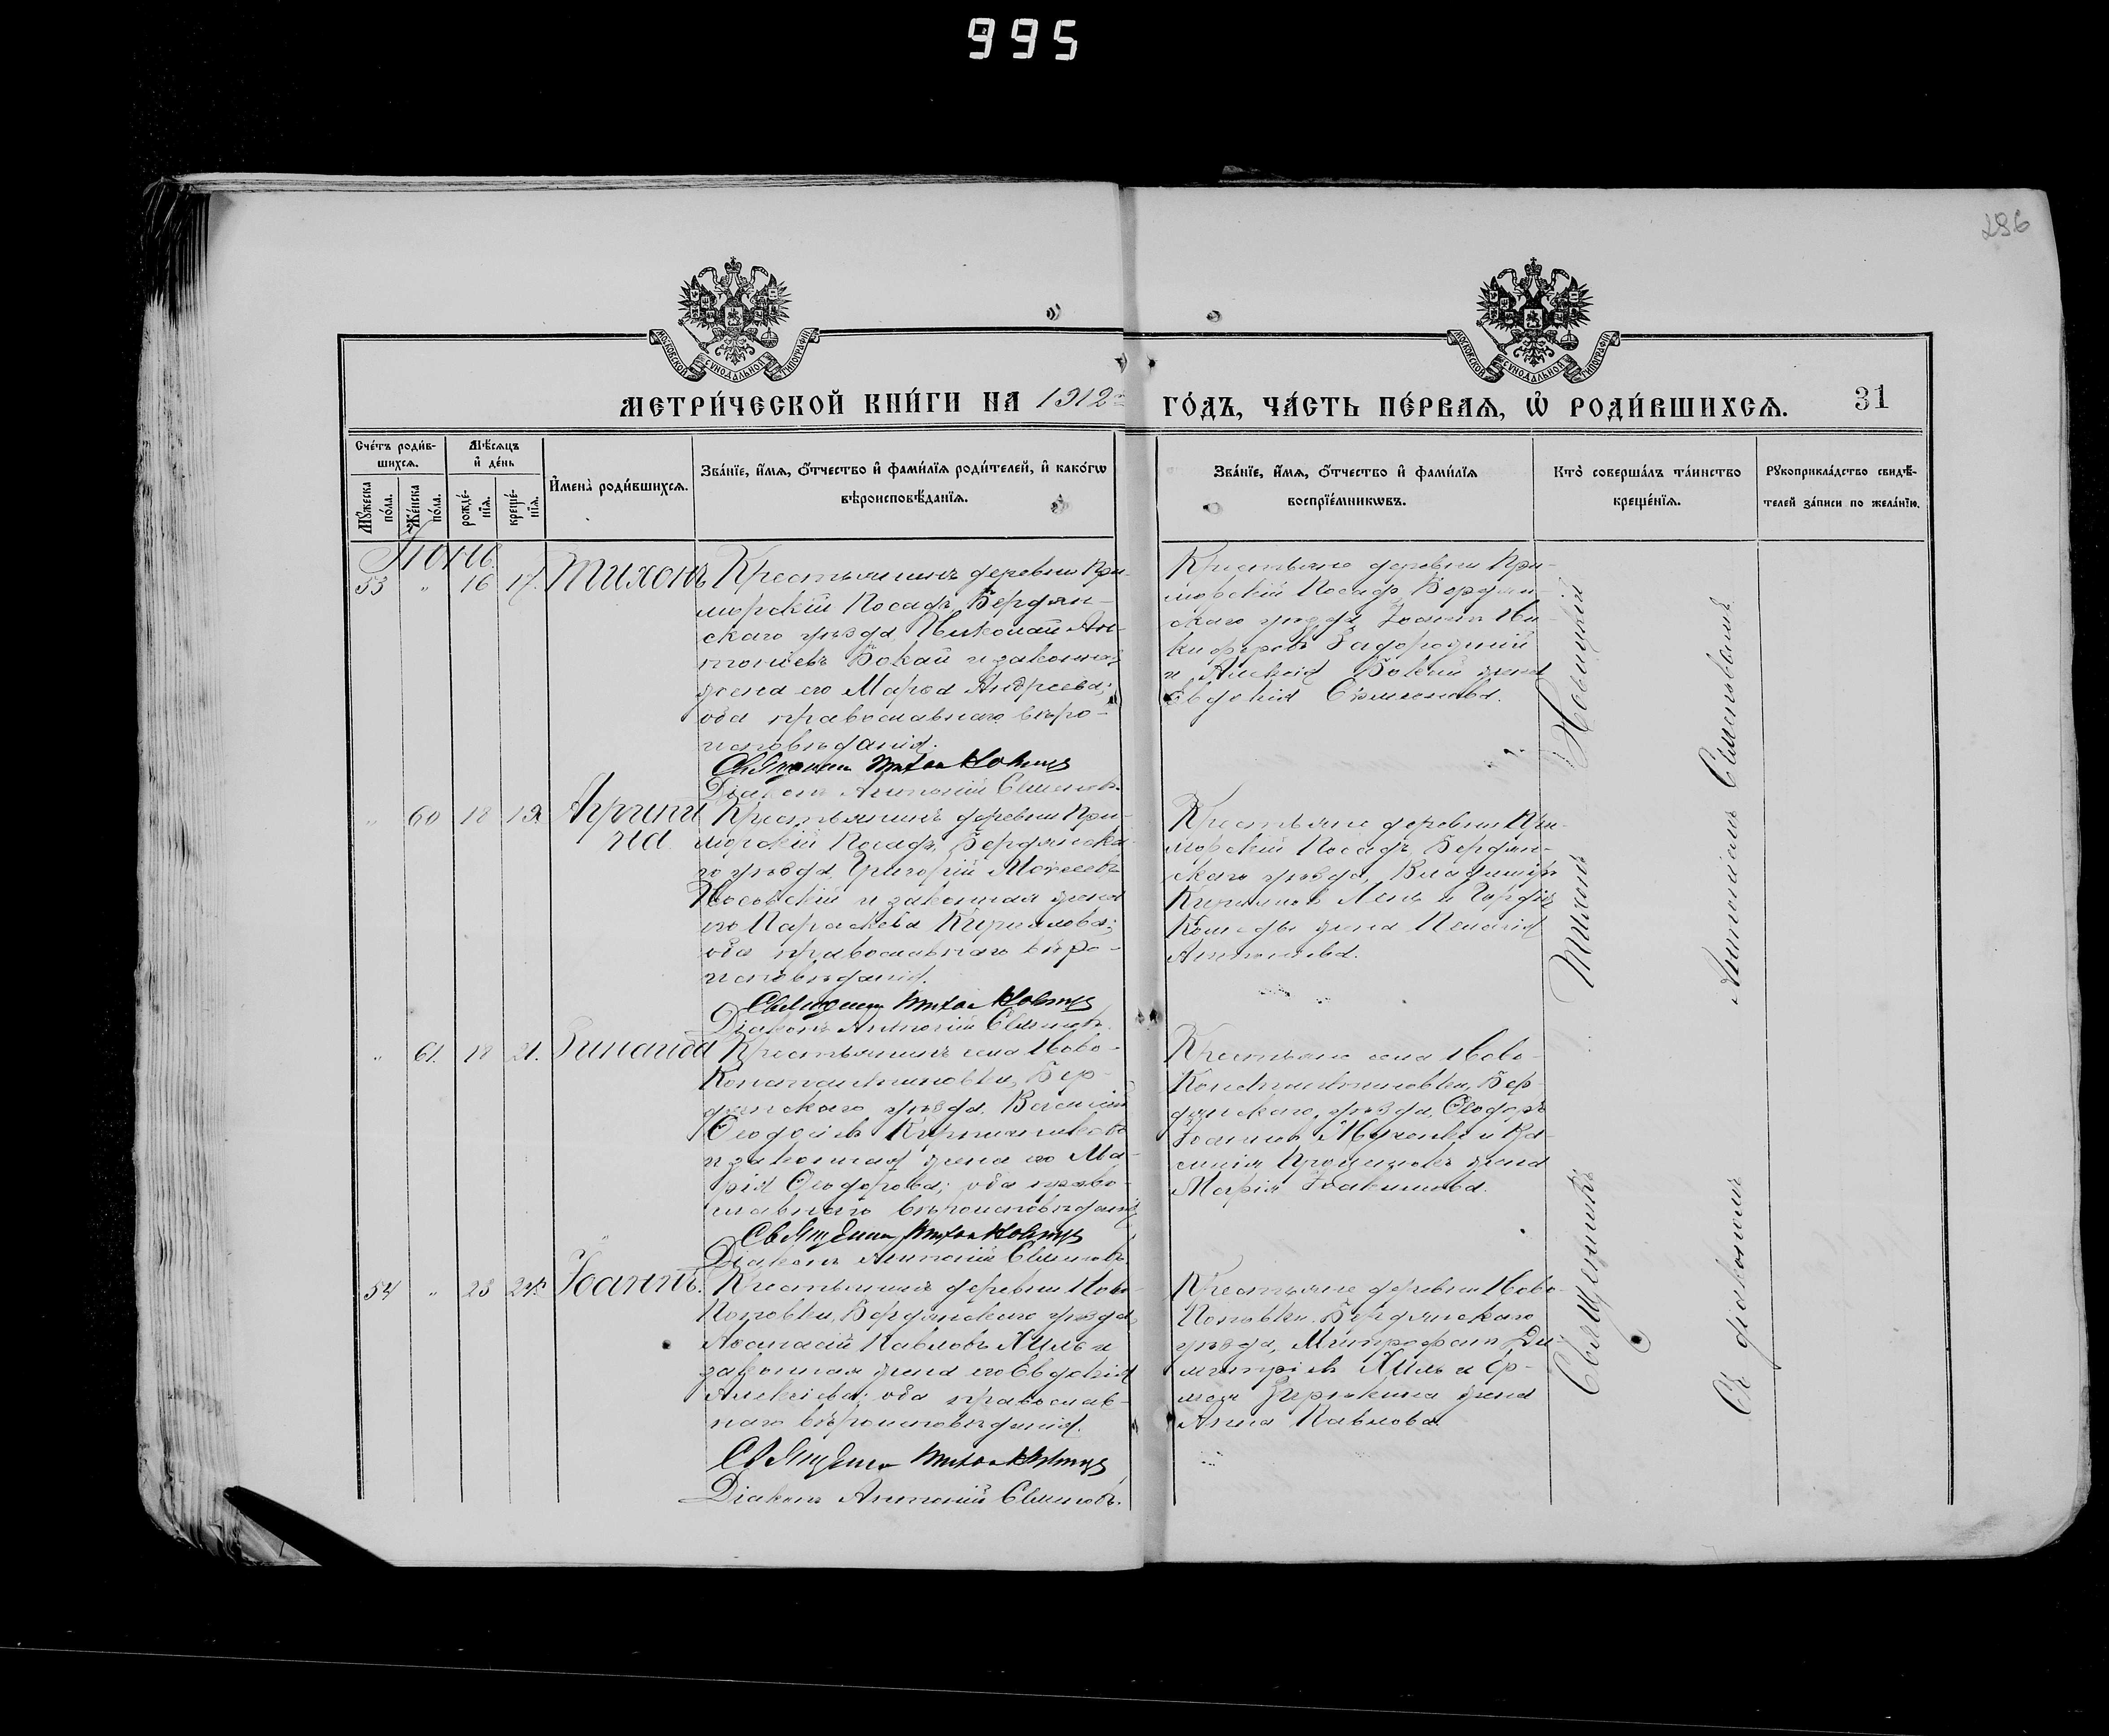 995
286
МОСКОВСКОЙ СѴНОДАЛЬНОЙ ТИПОГРАФІИ
МОСКОВСКОЙ СѴНОДАЛЬНОЙ ТИПОГРАФІИ
МЕТРИ́ЧЕСКОЙ КНИ́ГИ НА 1912 ГО́ДЪ, ЧА́СТЬ ПЕ́РВАЯ, Ѡ РОДИ́ВШИХСЯ. 31
Сче́тъ роди́в-
шихся.
Мѣ́сяцъ
и де́нь
Мꙋ́жеска по́ла.
Же́нска по́ла.
рожде́-
нїя.
креще́-
нїя.
Имена̀ роди́вшихся.
Зва́нїе, и́мя, ѻ҆́тчество и фами́лїя роди́телей, и како́гѡ
вѣроисповѣ́данїя.
Зва́нїе, и́мя, ѻ҆́тчество и фами́лїя
воспрїе́мникѡвъ.
Кто̀ соверша́лъ та́инство
креще́нїя.
Рꙋкоприкла́дство свидѣ́-
телей за́писи по жела́нїю.
Іюнь.
53 " 16 17. Тихонъ
Крестьянинъ деревни При-
морскій Посадъ, Бердян-
скаго уѣзда Николай Ан-
тоніевъ Бокай и законная
жена его Марѳа Андреева;
оба православнаго вѣро-
исповѣданія.
Священникъ Тихонъ Новицкій
Діаконъ Антоній Семеновъ
Крестьяне деревни При-
морскій Посадъ, Бердян-
скаго уѣзда, Іоаннъ Ни-
кифоровъ Задорожній
и Алексія Бокай жена
Евдокія Симеонова.
" 60 18 19. Агрипи
на
Крестьянинъ деревни При-
морскій Посадъ, Бердянска-
го уѣзда, Григорій Моисеевъ
Носовскій и законная жена
его Параскева Кириллова;
оба православнаго вѣро-
исповѣданія.
Священникъ Тихонъ Новицкій
Діаконъ Антоній Семеновъ
Крестьяне деревни При-
морскій Посадъ, Бердян-
скаго уѣзда, Владиміръ
Кирилловъ и
жена Пелагія
Антоніева.
" 61. 18 21. Зинаида
Крестьянинъ села Ново-
Константиновки, Бер-
дянскаго уѣзда, Василій
Ѳеодосіевъ
и законная жена его Ма-
рія Ѳеодорова; оба право-
славнаго вѣроисповѣданія
Священникъ Тихонъ Новицкій
Діаконъ Антоній Семеновъ
Крестьяне села Ново-
Константиновки, Бер-
дянскаго уѣзда, Ѳеодоръ
Іоанновъ и Ва-
силія жена
Марія Іоакимова.
54 " 23 24 Іоаннъ.
Крестьянинъ деревни Ново-
Поповки, Бердянскаго уѣзда,
Аѳанасій Павловъ Хиль и
законная жена его Евдокія
Алексіева; оба православ-
наго вѣроисповѣданія.
Священникъ Тихонъ Новицкій
Діаконъ Антоній Семеновъ.
Крестьяне деревни Ново-
Поповки, Бердянскаго
уѣзда, Митрофанъ Ди-
митріевъ Хиль и
жена
Анна Павлова
Священникъ Тихонъ Новицкій
Съ діакономъ Антоніемъ Семеновымъ